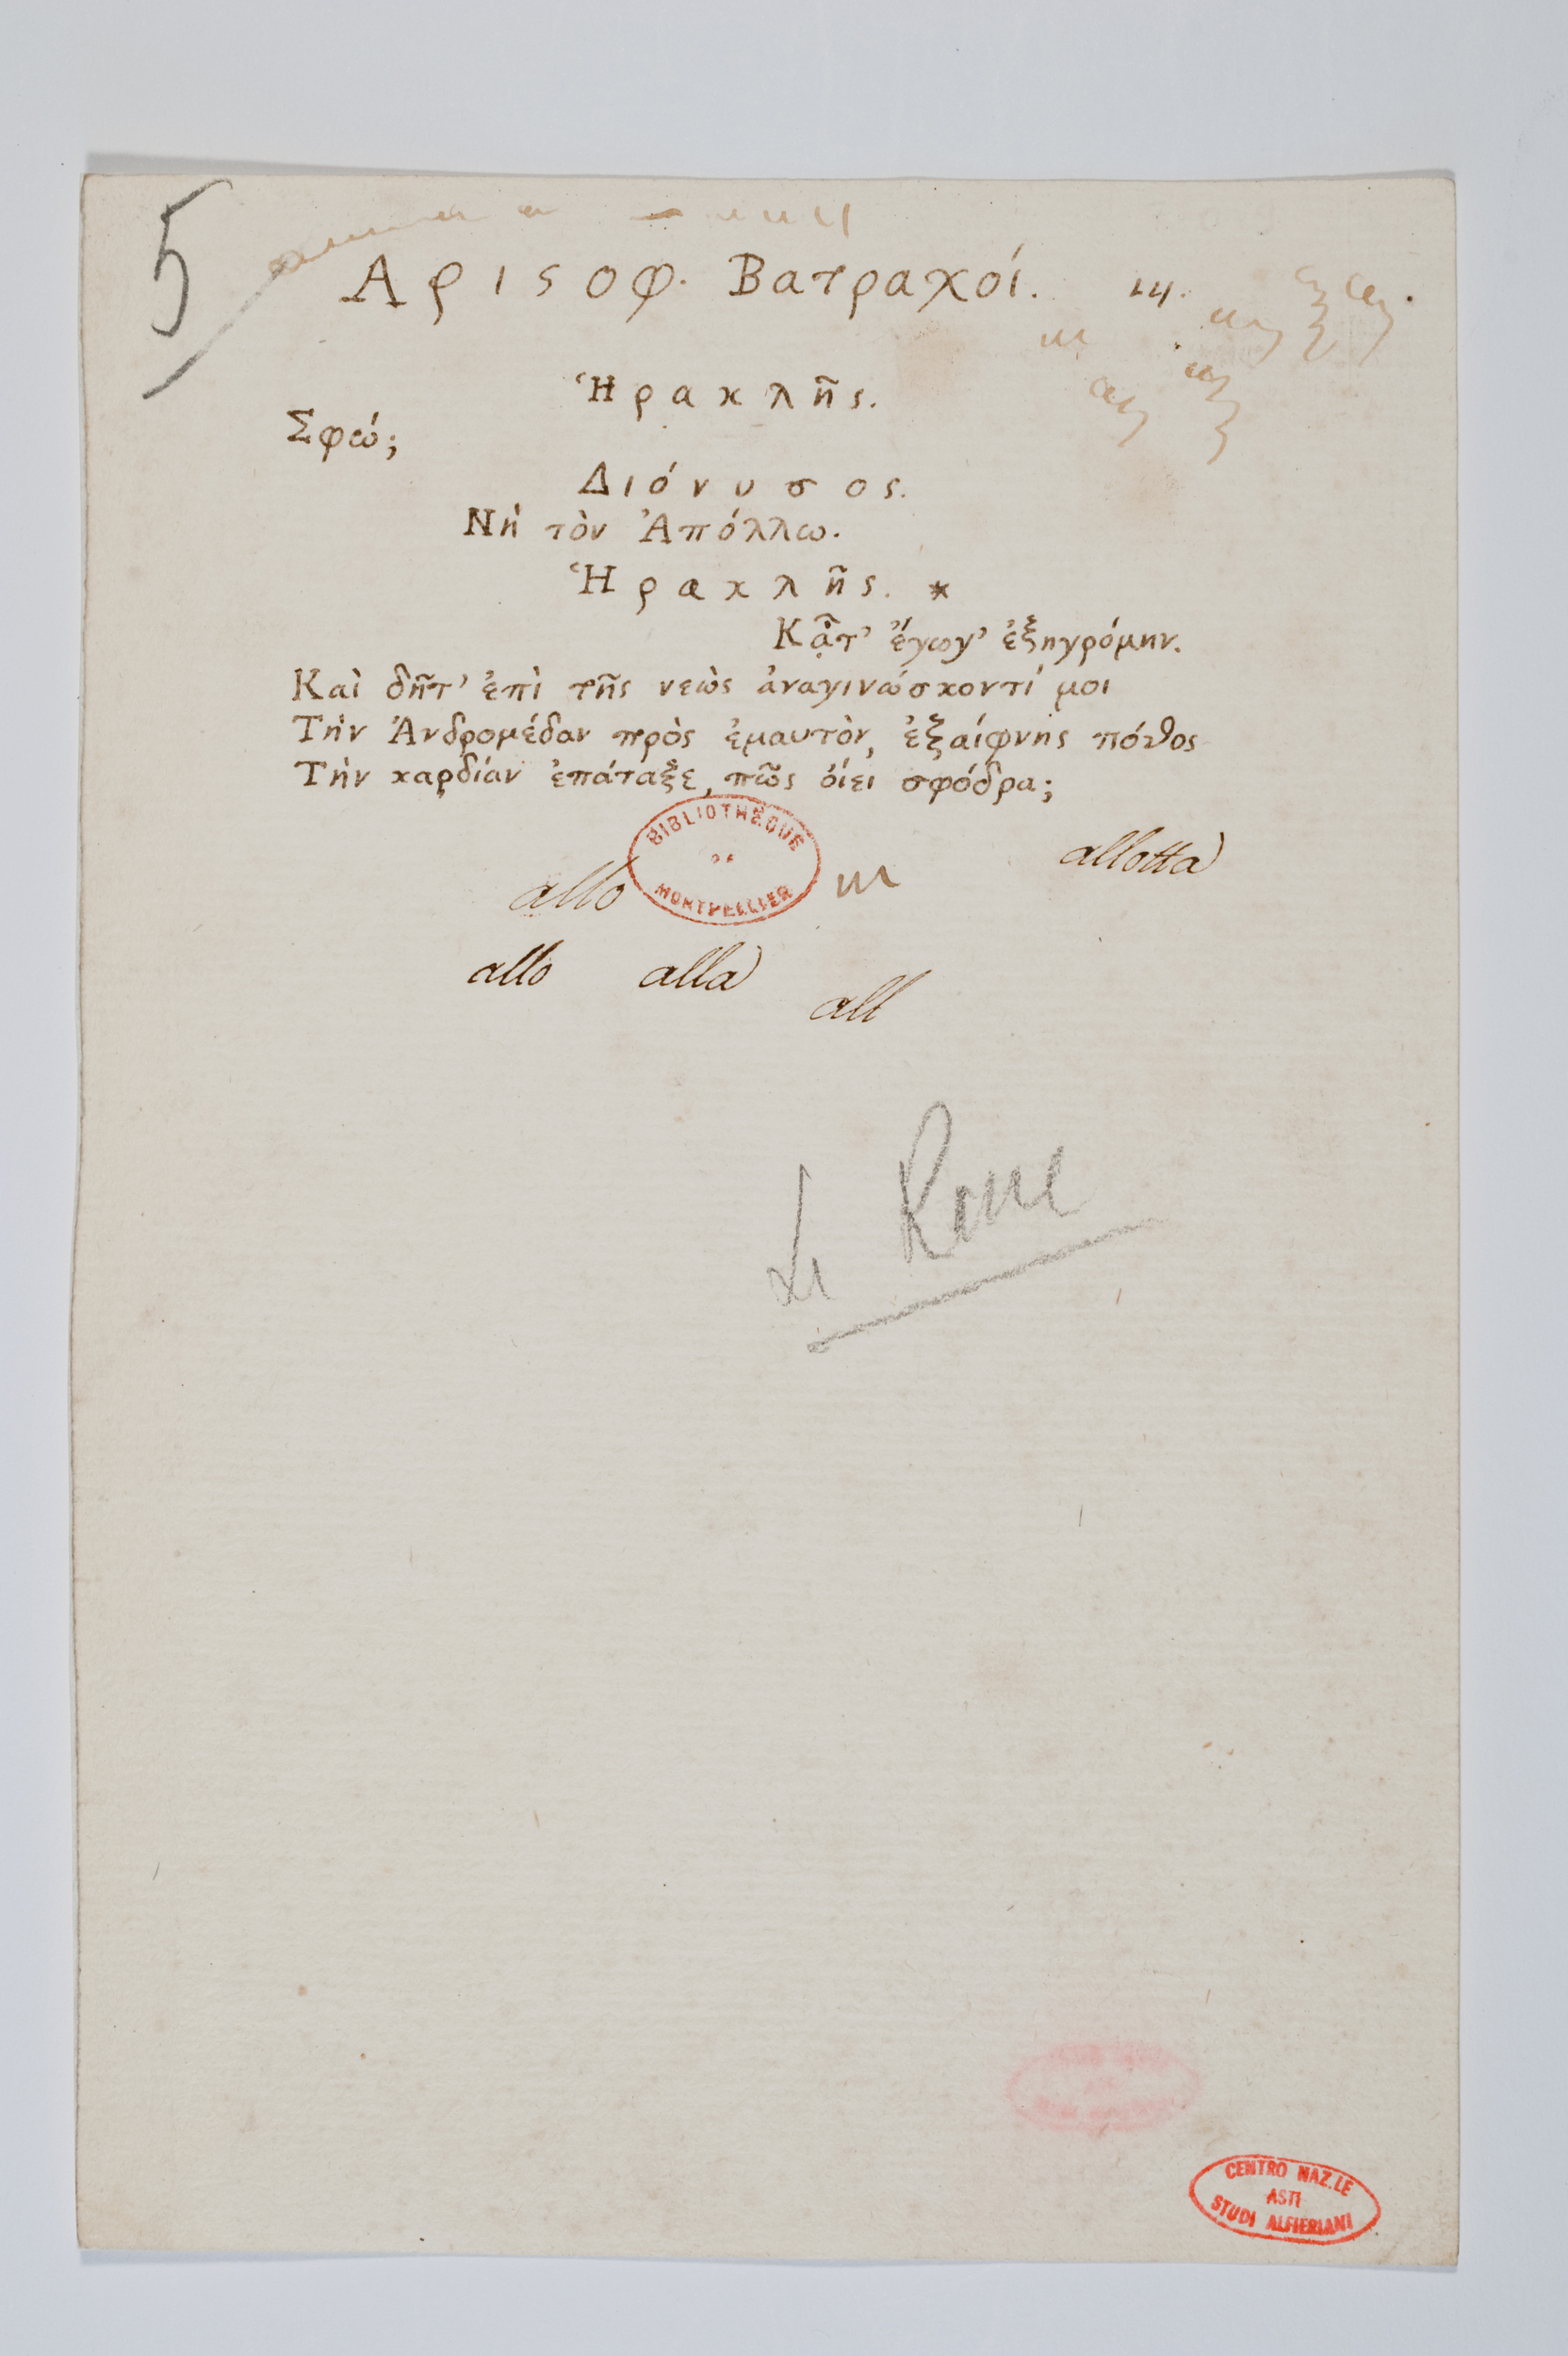 5
Αριϛοφ. Βατραχοί. 14.
Ἡρακλῆς.
Σφώ;
Διόνυσος.
Νὴ τὸν Ἀπόλλω.
Ἡρακλῆς. *
Κᾆτ' ἔγωγ' ἐξηγρόμην.
Καὶ δῆτ' ἐπὶ τῆς νεὼς ἀναγινώσκοντί μοι
Τὴν Ἀνδρομέδαν πρὸς ἐμαυτὸν, ἐξαίφνης πόθος
Τὴν καρδίαν ἐπάταξε, πῶς οἴει σφόδρα;
BIBLIOTHÈQUE DE MONTPELLIER
allotta
allo
allo alla
all
Le Rane
CENTRO NAZ.LE
ASTI
STUDI ALFIERIANI